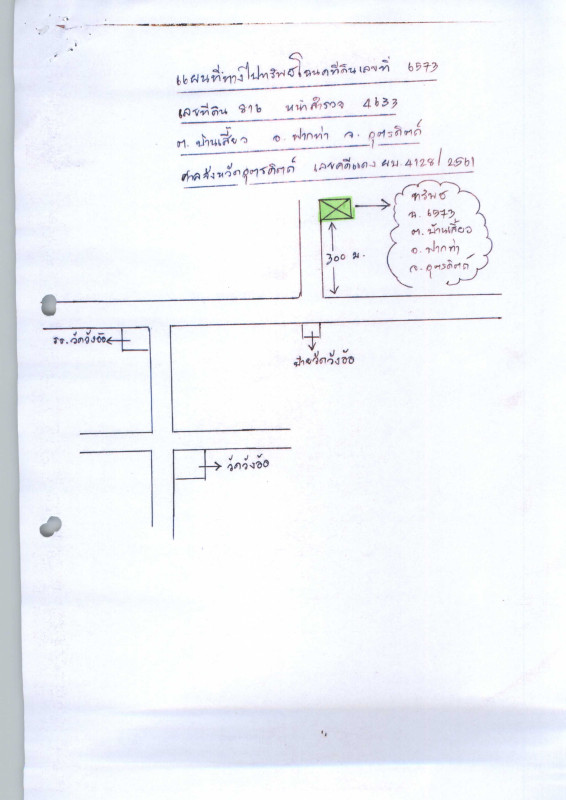 แผนที่ทางไปทรัพย์โฉนดที่ดินเลขที่ 6573
เลขที่ดิน 816 หน้าสำรวจ 4633
ต. บ้านเสี้ยว อ. ฟากท่า จ. อุตรดิตถ์
ศาลจังหวัดอุตรดิตถ์ เลขคดีแดง ผบ. 4128/2561
ทรัพย์
ฉ. 6573
ต. บ้านเสี้ยว
อ. ฟากท่า
จ. อุตรดิตถ์
300 ม.
รร. วัดวังอ้อ
ป้ายวัดวังอ้อ
วัดวังอ้อ